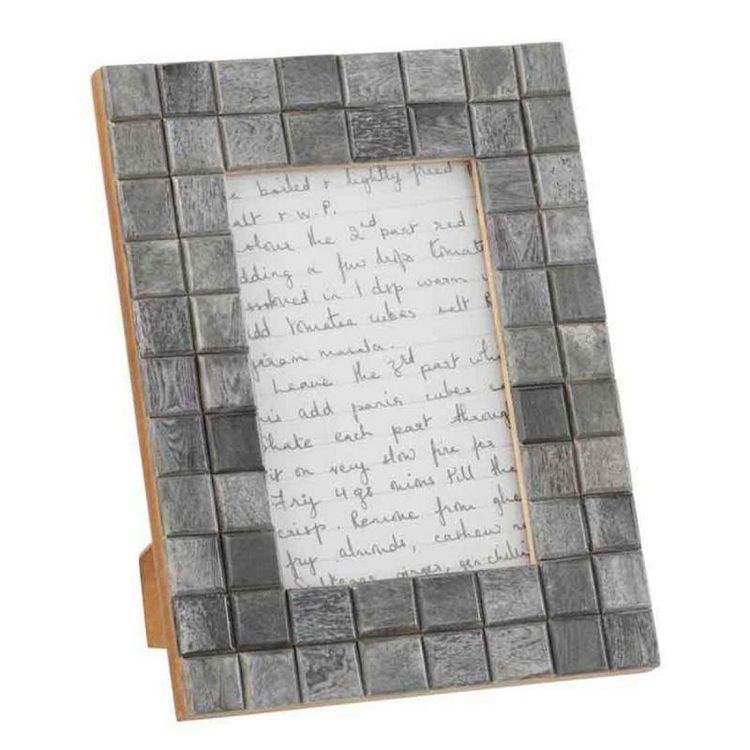 e boiled & lightly fried
alt & W.P.
olour the 2nd part red
dding a few drops tomat
ssolved in 1 dsp warm w
dd tomatoe cubes salt P
garam masala.
Leave the 3rd part whi
is add panir cubes
hake each part throug
it on very slow fire for
Fry 4 gs onions till the
crisp. Remove from ghe
fry almonds, cashew n